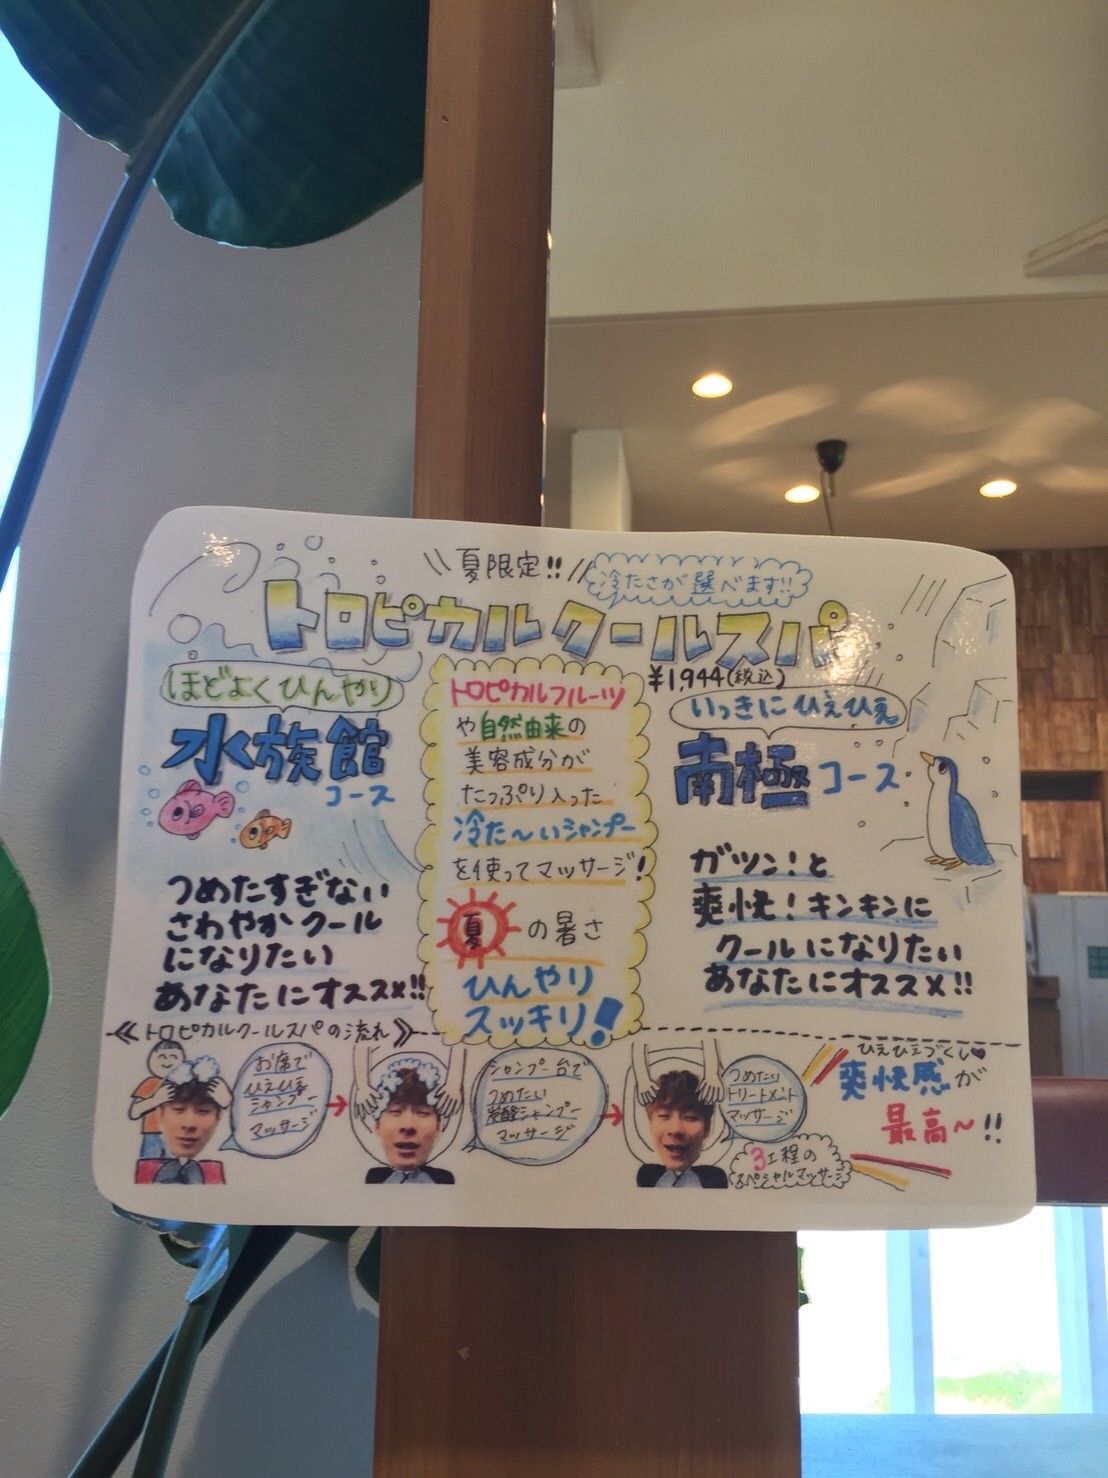 夏限定!!
冷たさが選べます!!
トロピカルクールスパ
¥1,944(税込)
ほどよくひんやり
水族館
コース
つめたすぎない
さわやかクール
になりたい
あなたにオススメ!!
トロピカルフルーツ
や自然由来の
美容成分が
たっぷり入った
冷た〜いシャンプー
を使ってマッサージ!
夏の暑さ
ひんやり
スッキリ!
いっきにひえひえ
南極コース
ガツン!と
爽快!キンキンに
クールになりたい
あなたにオススメ!!
トロピカルクールスパの流れ
お席で
ひえひえ
シャンプー
マッサージ
シャンプー台で
つめたい
炭酸シャンプー
マッサージ
つめたい
トリートメント
マッサージ
3工程の
スペシャルマッサージ
ひえひえづくし♥
爽快感が
最高〜!!